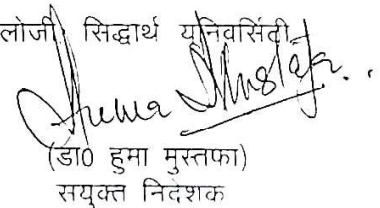 लोजी सिद्धार्थ यूनिवर्सिटी
Huma Mustafa
(डा0 हुमा मुस्तफा)
सयुक्त निदेशक